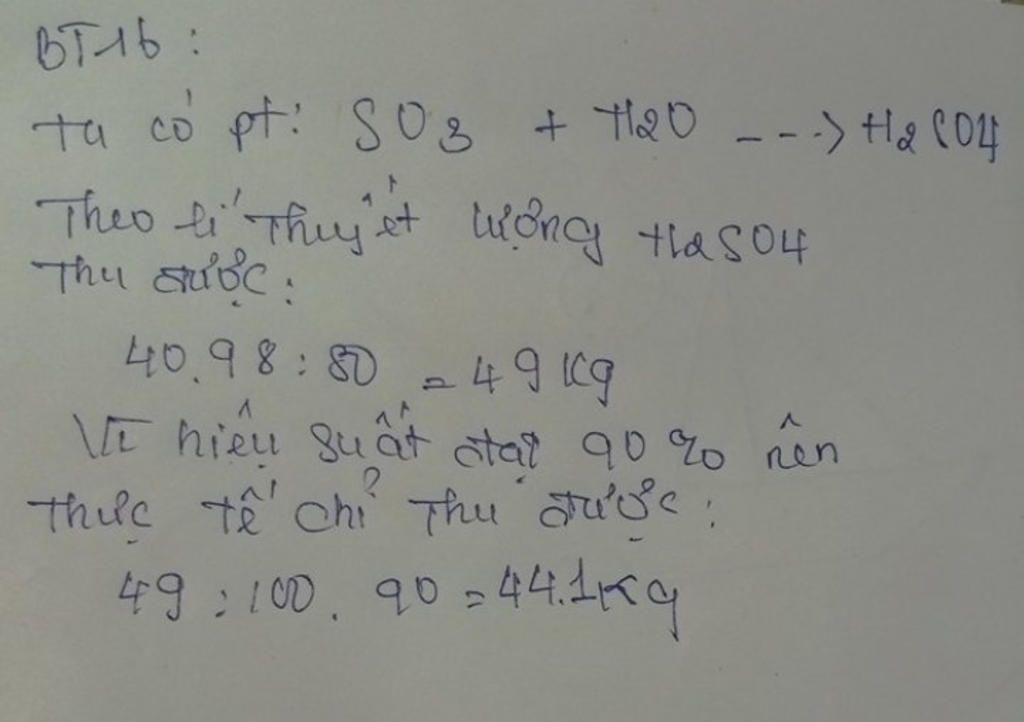 BT16 :
Ta có pt: SO3 + H2O ---> H2SO4
Theo lí Thuyết lượng H2SO4
Thu được :
40.98 : 80 = 49 Kg
Vì hiệu suất đạt 90 % nên
Thực tế chỉ Thu được :
49 : 100 . 90 = 44.1Kg